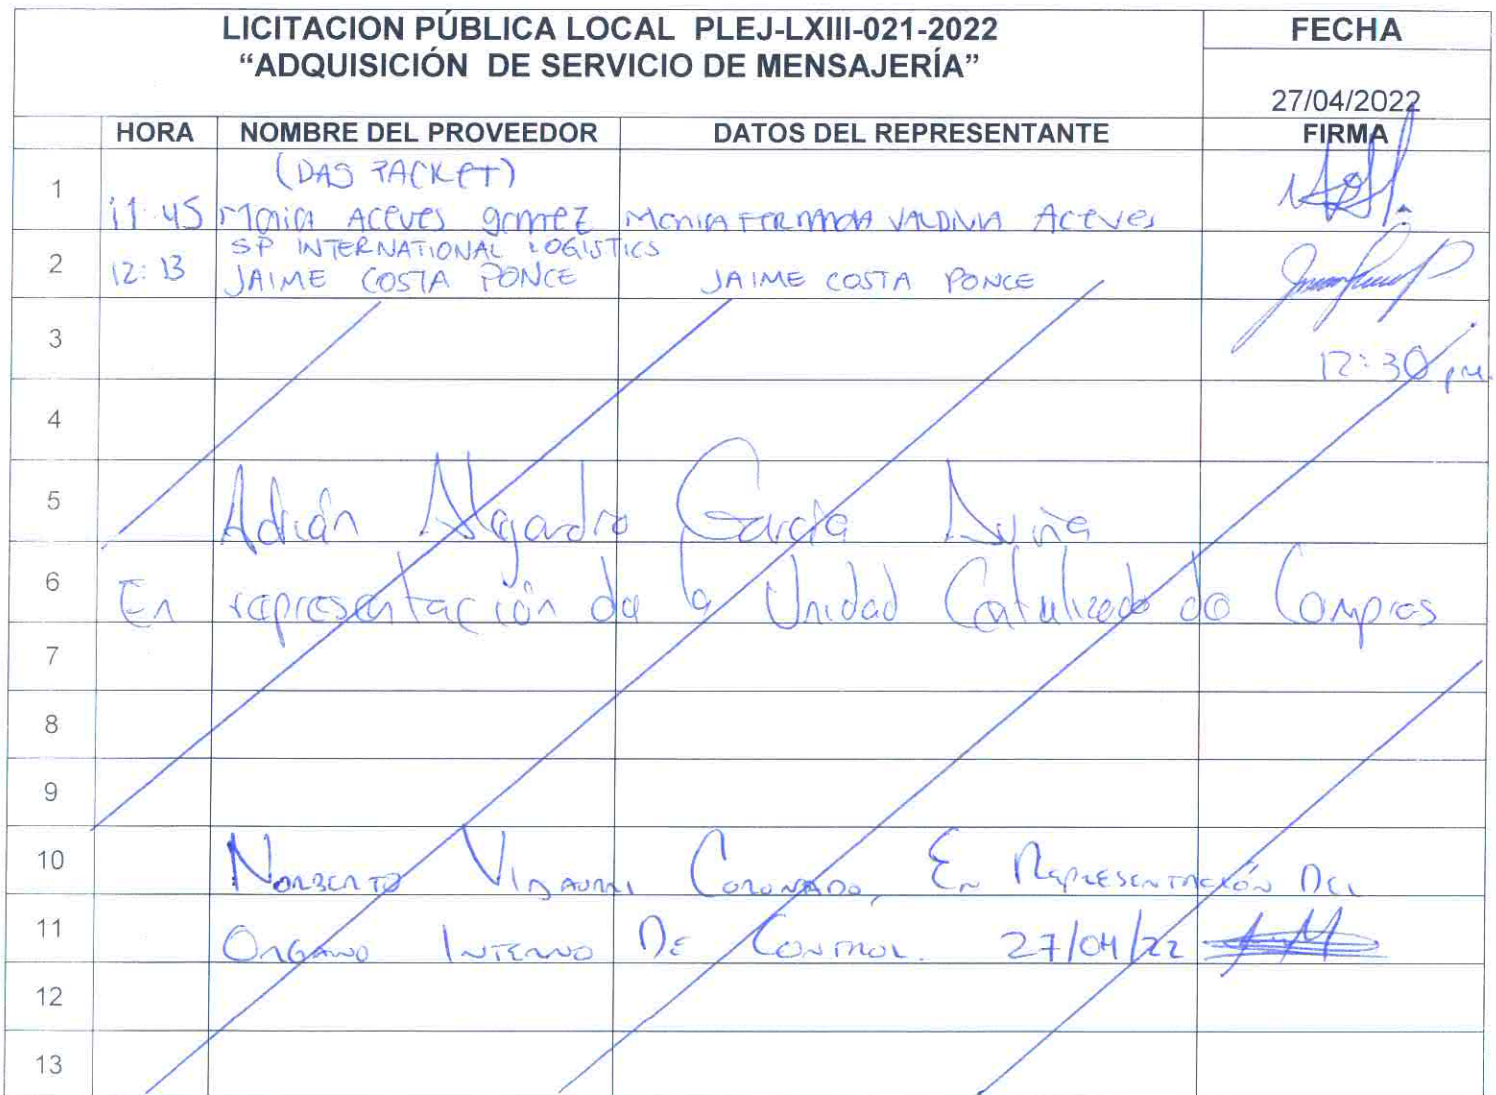 LICITACION PÚBLICA LOCAL PLEJ-LXIII-021-2022
"ADQUISICIÓN DE SERVICIO DE MENSAJERÍA"
FECHA
27/04/2022
HORA NOMBRE DEL PROVEEDOR DATOS DEL REPRESENTANTE FIRMA
1
(DAS PACKET)
11:45 Maria Aceves gomez Monica FERNANDA VALDIVIA Aceves
2
SP INTERNATIONAL LOGISTICS
12:13 JAIME COSTA PONCE JAIME COSTA PONCE
3
12:30 pm.
4
5 Adrián Alejandro García
6 En representación de la Unidad de Compras
7
8
9
10 NORBERTO VIDAURRI CORONADO, EN REPRESENTACIÓN DEL
11 ORGANO INTERNO DE CONTROL. 27/04/22
12
13